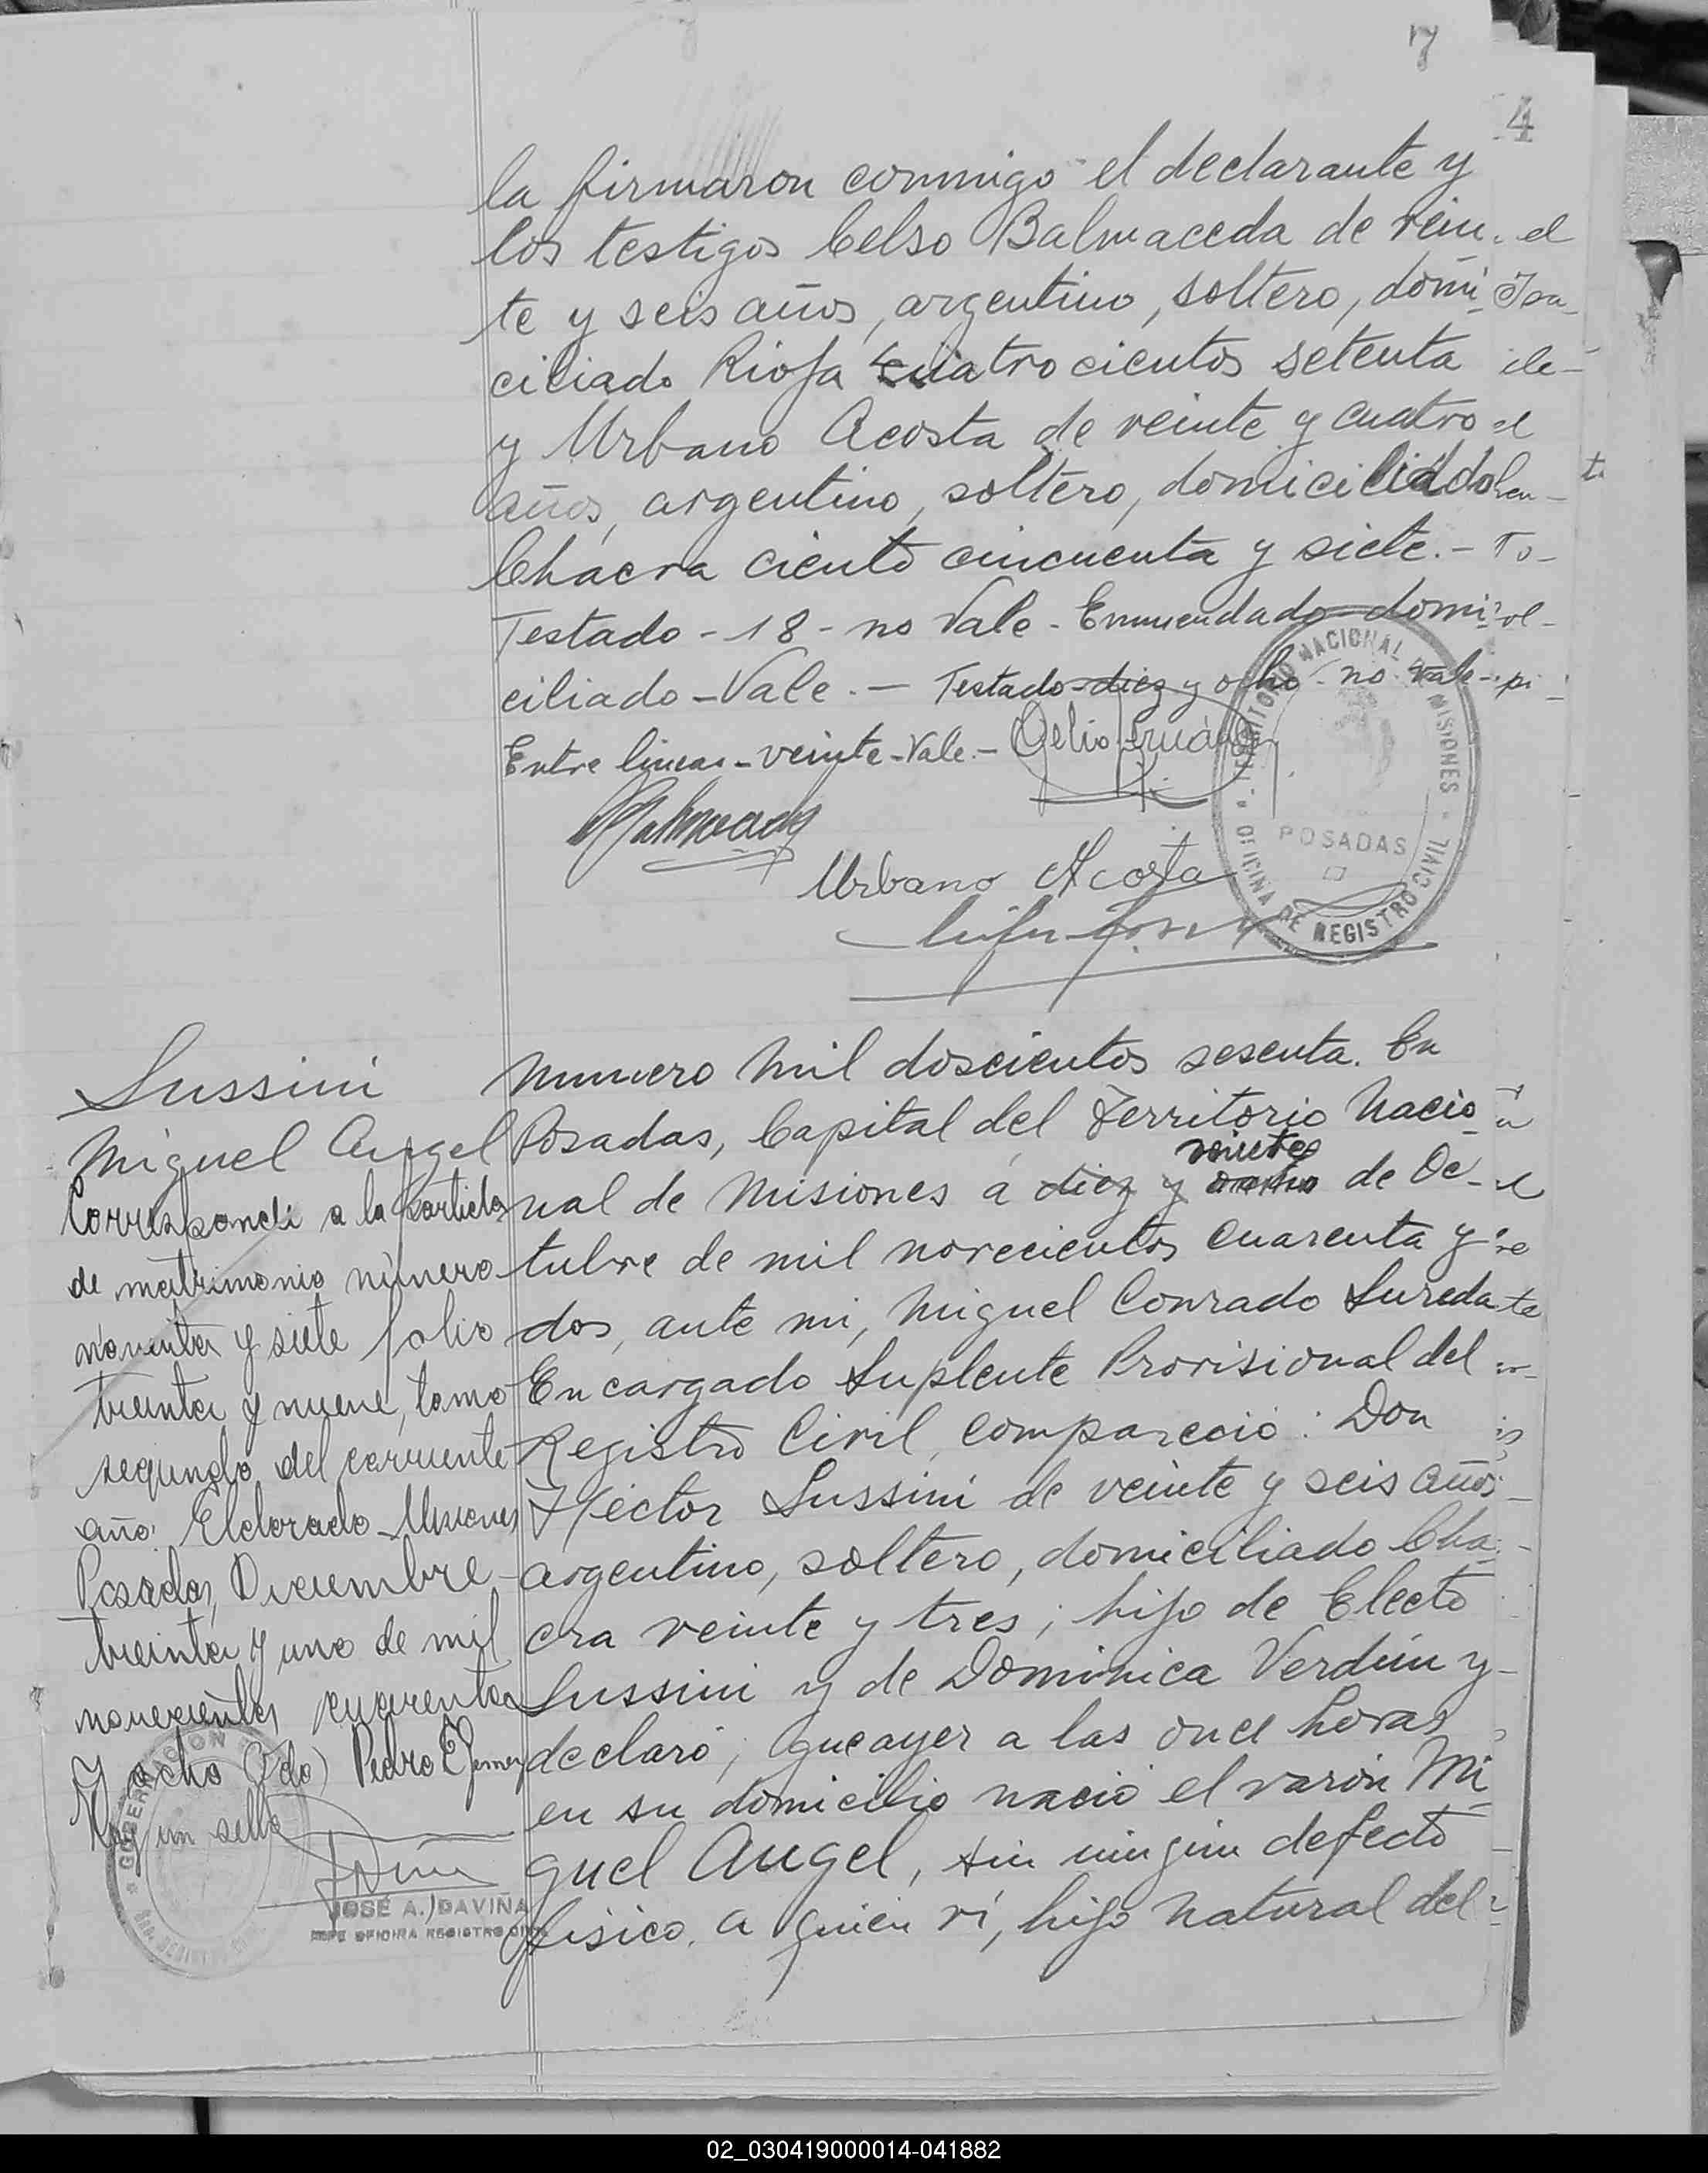 7
4
la firmaron conmigo el declarante y
los testigos Celso Balmaceda de vein-
te y seis años, argentino, soltero, domi-
ciliado Rioja cuatrocientos setenta
y Urbano Acosta de veinte y cuatro
años, argentino, soltero, domiciliado
Chacra ciento cincuenta y siete.-
Testado - 18 - no Vale - Enmendado domi-
ciliado - Vale. - Testado diez y ocho - no vale -
Entre lineas - veinte - Vale. -
TERRITORIO NACIONAL DE MISIONES
POSADAS
OFICINA DE REGISTRO CIVIL
Urbano Acosta
Sussini
Miguel Angel
Corresponde a la partida
de matrimonio número
noventa y siete folio
treinta y nueve, tomo
segundo del corriente
año. Eldorado - Misiones
Posadas, Diciembre
treinta y uno de mil
novecientos cuarenta
y ocho (Fdo) Pedro E Gomez
Hay un sello
GOBERNACION
JOSÉ A. DAVIÑA
JEFE OFICINA REGISTRO CIVIL
Numero Mil doscientos sesenta. En
Posadas, Capital del Territorio Nacio-
veinte
nal de Misiones á diez y ocho de Oc-
tubre de mil novecientos cuarenta y
dos, ante mi, Miguel Conrado Sureda
Encargado Suplente Provisional del
Registro Civil, compareció: Don
Héctor Sussini de veinte y seis años,
argentino, soltero, domiciliado Cha-
cra veinte y tres; hijo de Electo
Sussini y de Dominica Verdún y
declaró; que ayer a las once horas
en su domicilio nació el varón Mi-
guel Angel, sin ningún defecto
fisico, a quien ví, hijo natural del
02_030419000014-041882